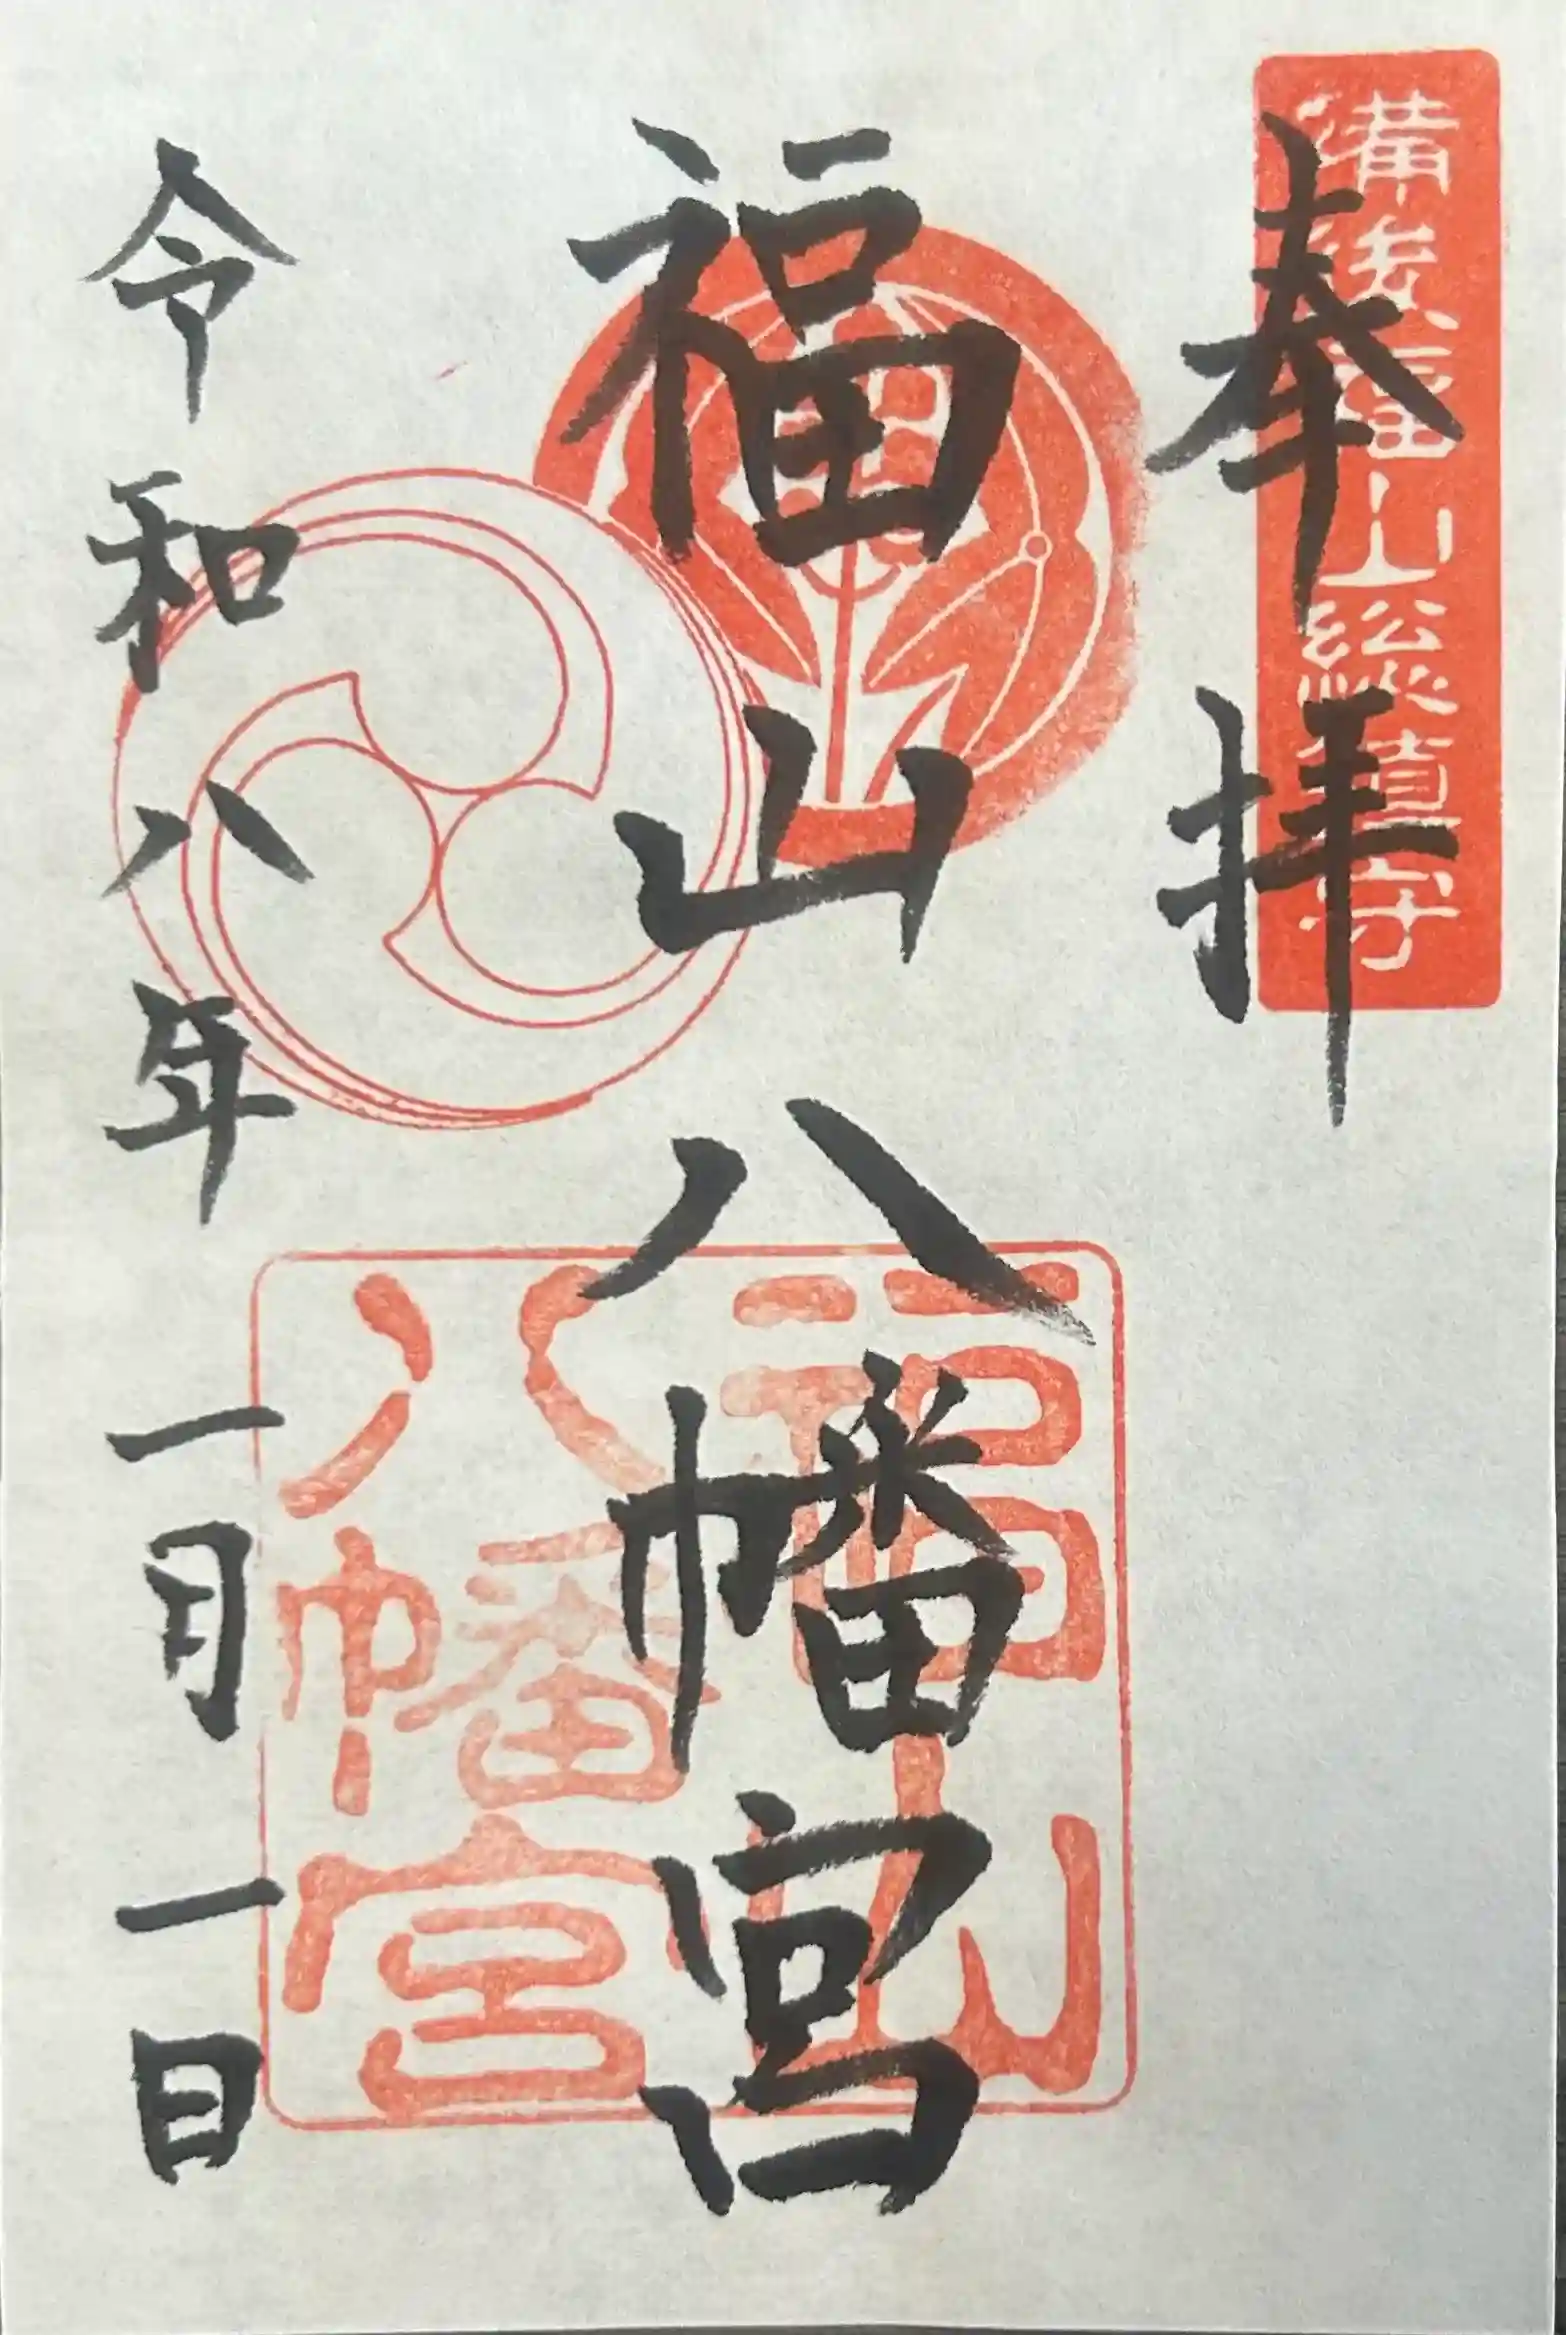 備後福山総鎮守
奉拝
福山八幡宮
福山
八幡宮
令和八年一月一日